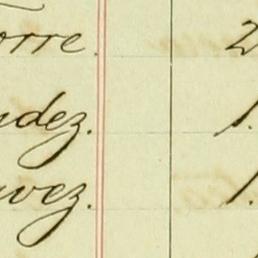 orre. 2
ndez. 1.
avez. 1.